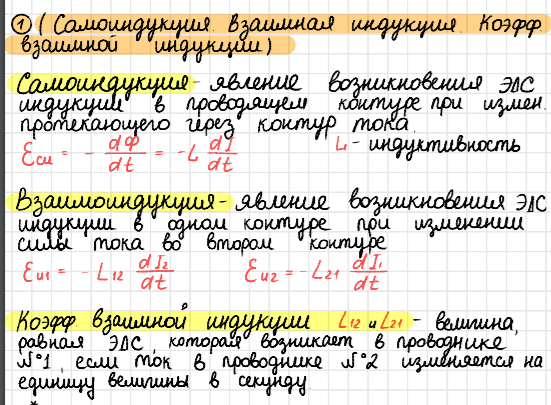 ① (Самоиндукция. Взаимная индукция. Коэфф.
взаимной индукции)
Самоиндукция - явление возникновения ЭДС
индукции в проводящем контуре при измен.
протекающего через контур тока.
Ɛси = - dФ/dt = -L dI/dt L - индуктивность
Взаимоиндукция - явление возникновения ЭДС
индукции в одном контуре при изменении
силы тока во втором контуре
Ɛи1 = - L12 dI2/dt Ɛи2 = - L21 dI1/dt
Коэфф. взаимной индукции L12 и L21 - величина,
равная ЭДС, которая возникает в проводнике
№1, если ток в проводнике №2 изменяется на
единицу величины в секунду